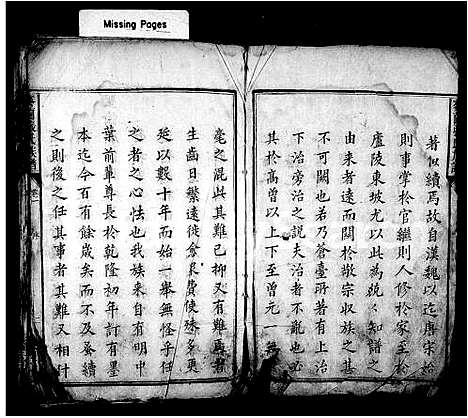 Missing Pages
著似續焉故自漢魏以迄唐宋始
則事掌於官繼則人修於家至於
廬陵東坡尤以此為兢兢知譜之
由來者遠而關於敬宗收族之甚
不可闕也若乃蒼臺所著有上治
下治旁治之說夫治者不亂也必
其於高曾以上下至曾元一無
毫之混與其難已柳又有難焉者
生齒日繁遠徙愈
費使殊多更
延以數十年而始一舉無怪乎任
之者之心怯也我族來自有明中
葉前輩尊長於乾隆初年訂有墨
本迄今百有餘歲矣而不及發續
之則後之任其事者其難又相什